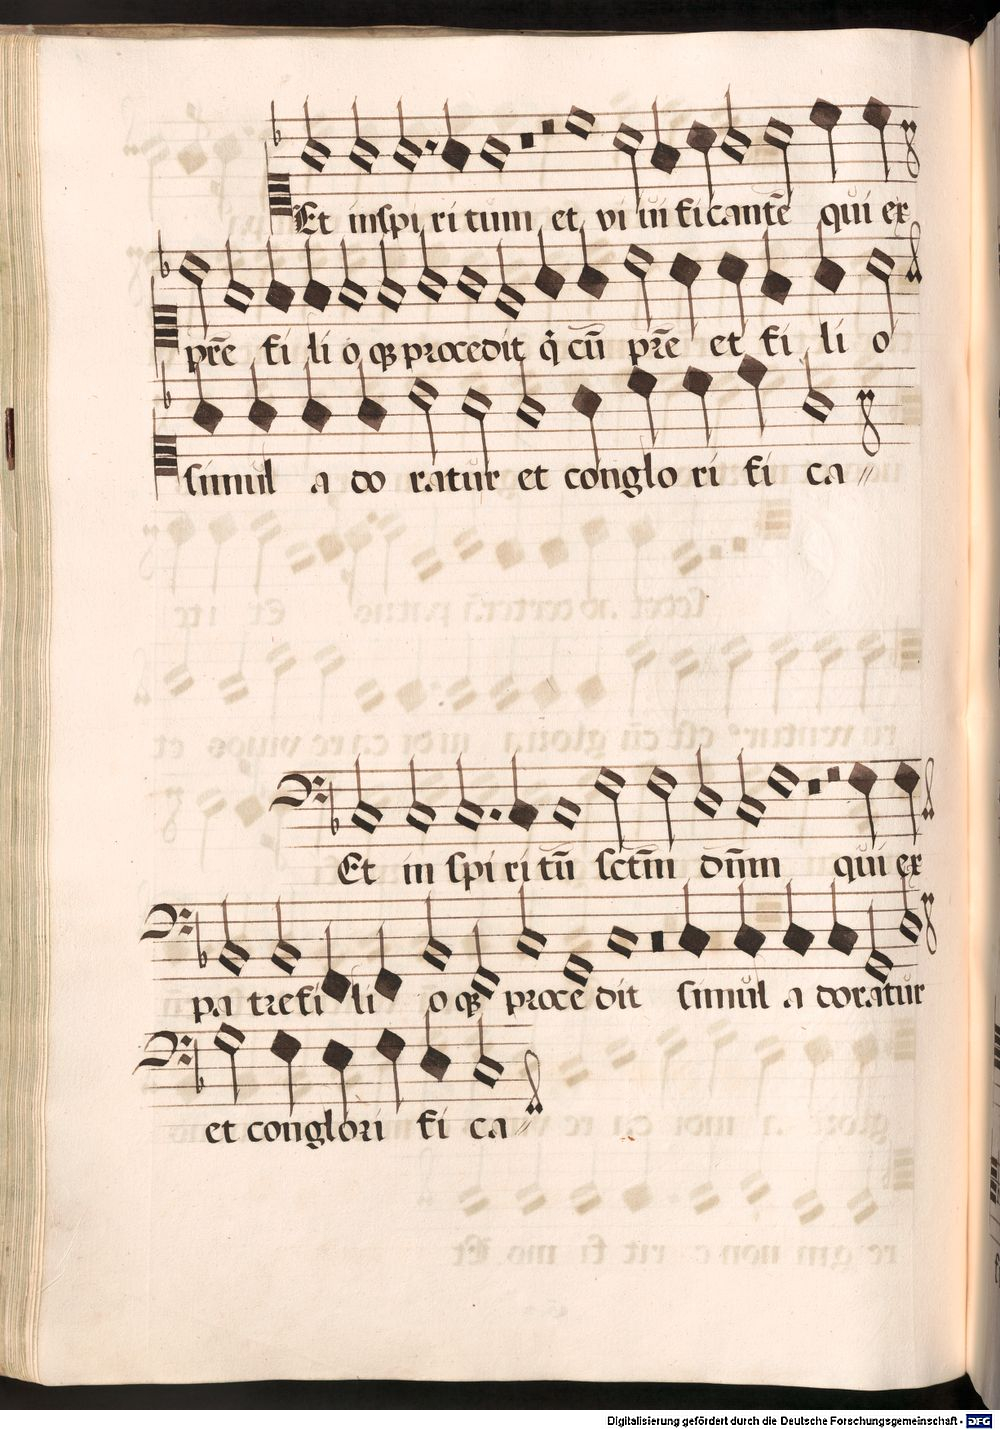 Et inspi ri tum et vi ui ficantē qui ex
pr̄e fi li o qꝫ procedit q̇ cū pr̄e et fi li o
simul a do ratur et conglo ri fi ca
Et in spi ri tū sctm̄ dn̄m qui ex
pa tre fi li o qꝫ proce dit simul a doratur
et conglori fi ca
Digitalisierung gefördert durch die Deutsche Forschungsgemeinschaft - DFG